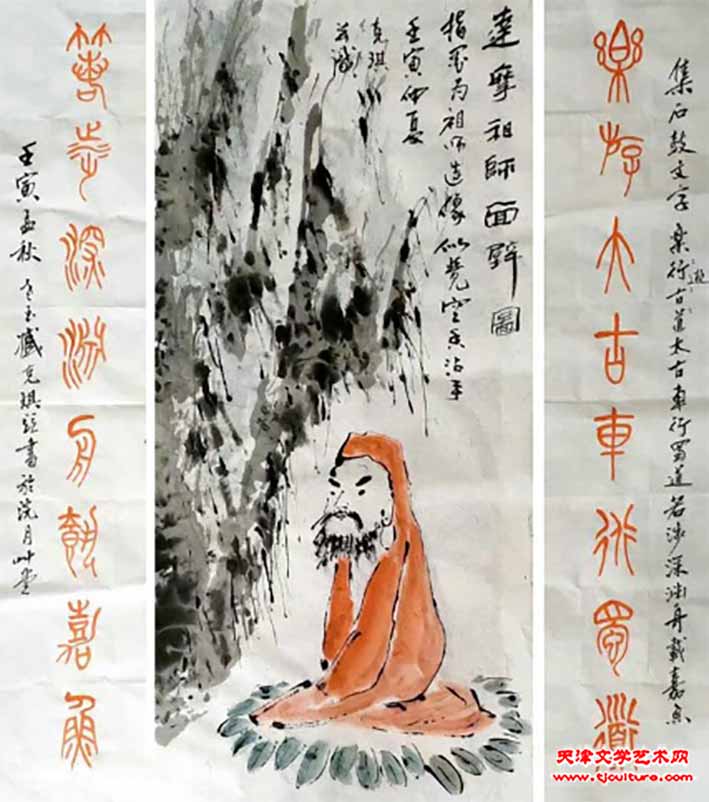 集石鼓文字 樂行古道太古車行蜀道若涉深淵舟載嘉魚
遊
樂游大古車行蜀道
達摩祖師面壁圖
指墨為祖師造像似覺空香沾手
壬寅仲夏
克琪
并識
若涉深淵舟載嘉魚
壬寅孟秋 臧克琪 書於浣月艸堂
天津文学艺术网
www.tjculture.com